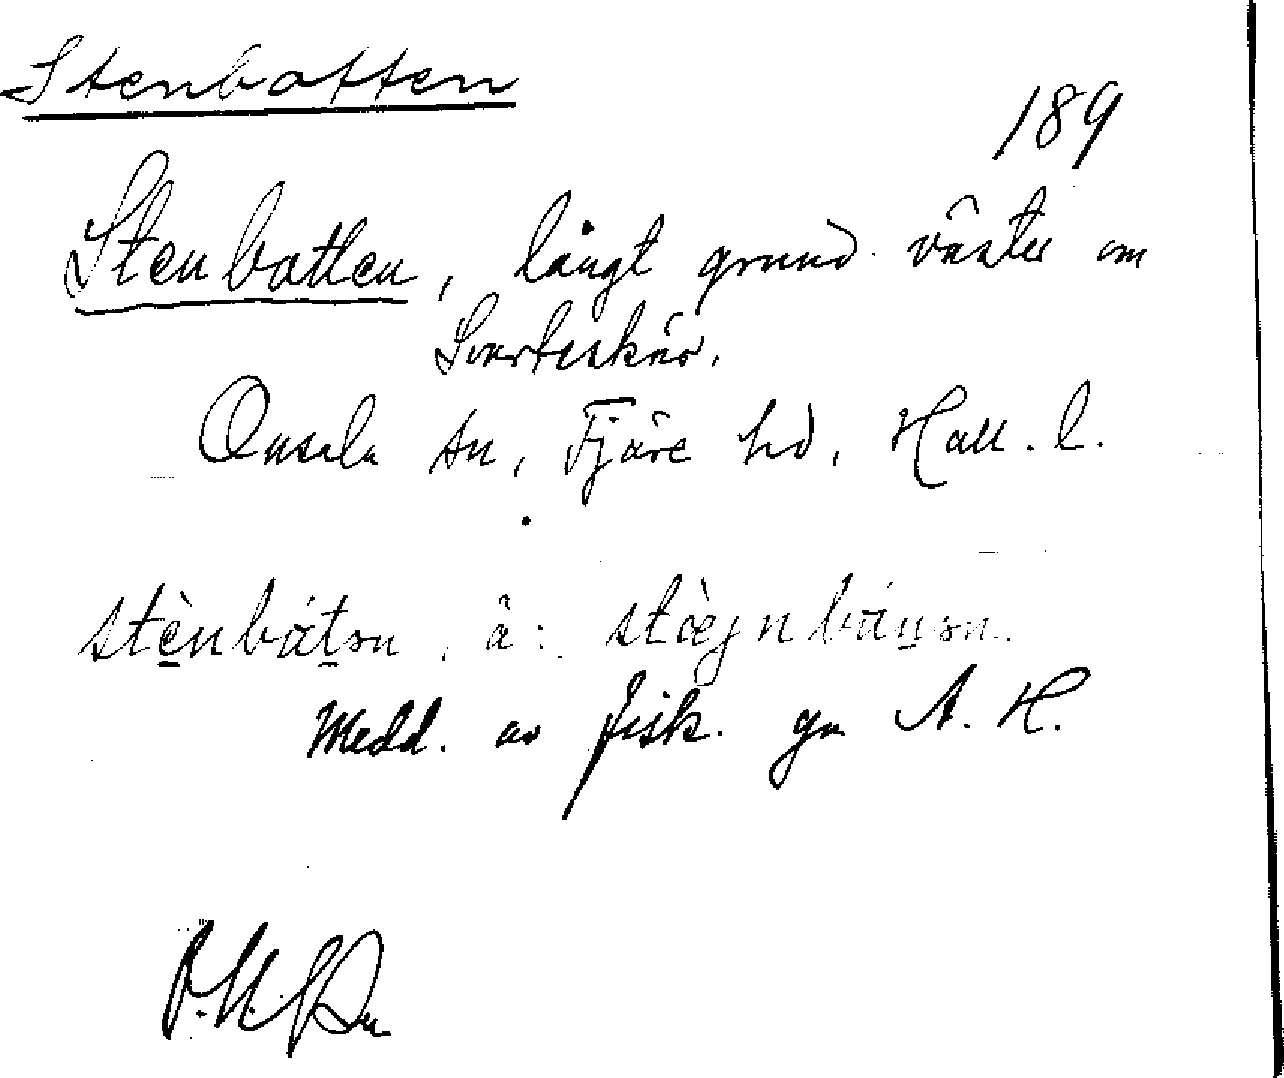 Stenbotten
189
Stenbotten, långt grund väster om
Svarteskär.
Onsala sn, Fjäre hd, Hall. l.
stènbátsn, ä:
Medd. av fisk. gm A. H.